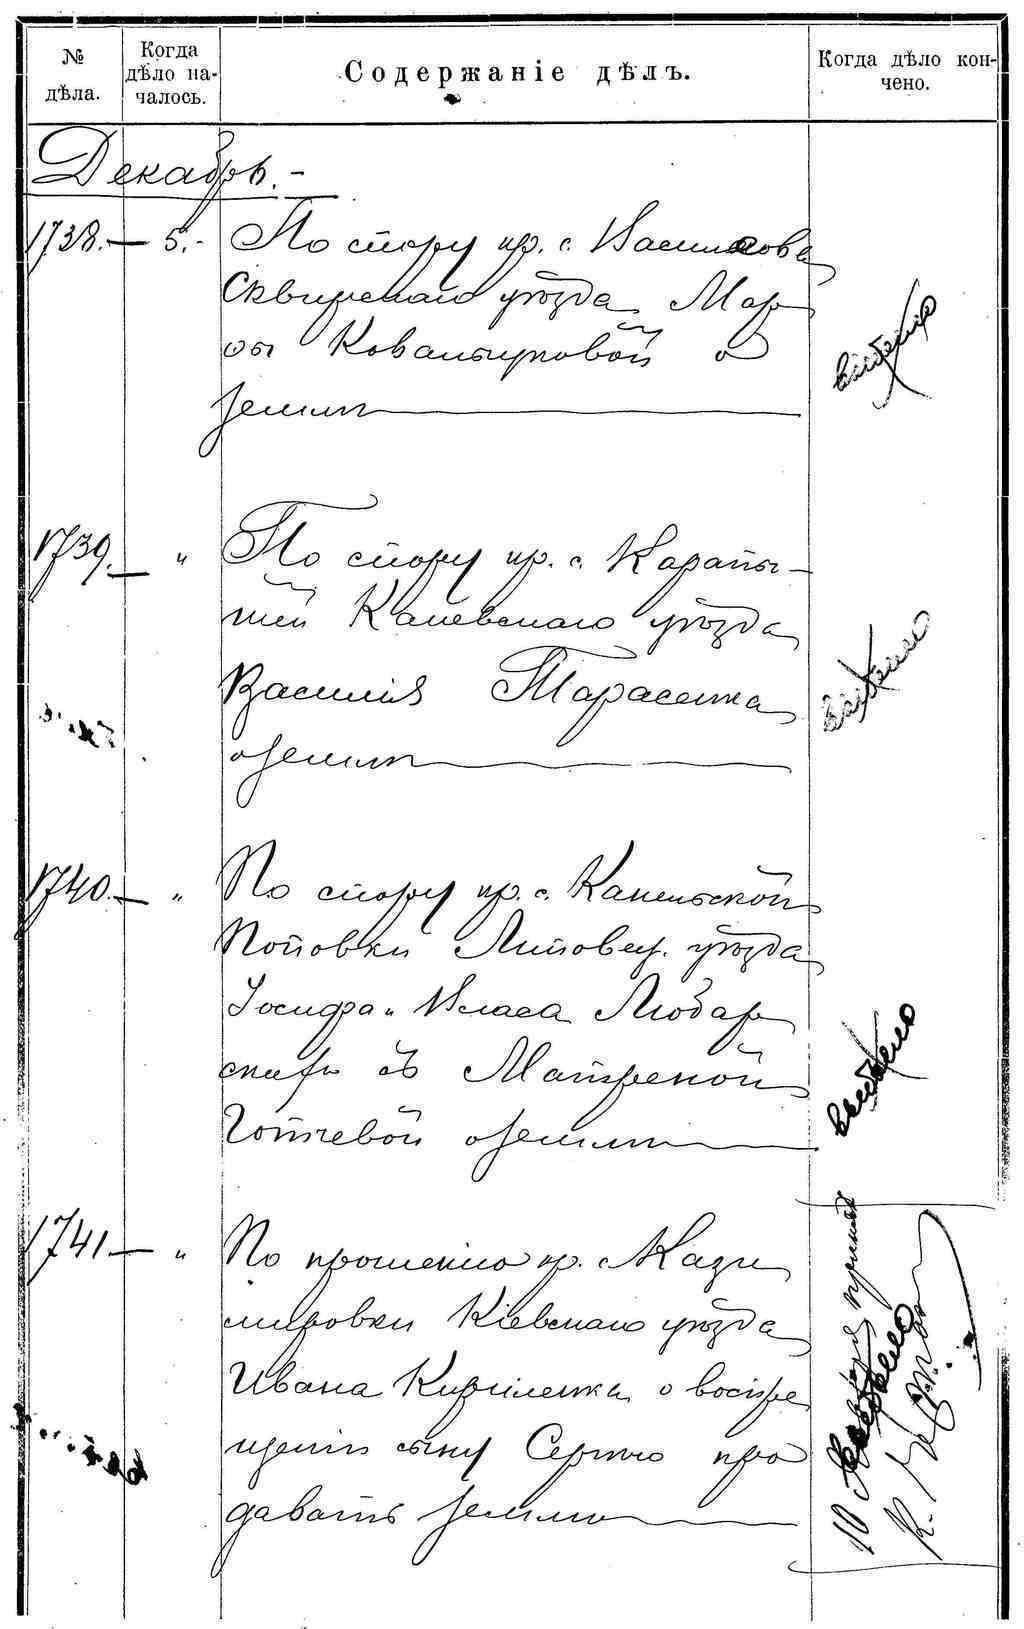 № дѣла.
Когда дѣло на-
чалось.
Содержаніе дѣлъ.
Когда дѣло кон-
чено.
Декабрь.-
1738.— 5.- По спору кр. с. Василева
Сквирскаго уѣзда Мар
ѳы Ковальчуковой о
землѣ
1739.— „ По спору кр. с. Карапы-
шей Каневскаго уѣзда
Василія Тарасенка
о землѣ
1740.— „ По спору кр. с. Канельской
Поповки Липовец. уѣзда
Іосифа и Власа Любар
скихъ съ Матреной
Готчевой о землѣ
1741.— „ По прошенію кр. Кази
мировки Кіевскаго уѣзда
Ивана Кириленка о воспре
щеніи сыну Сергѣю про
давать землю
выбыло
выбыло
выбыло
10